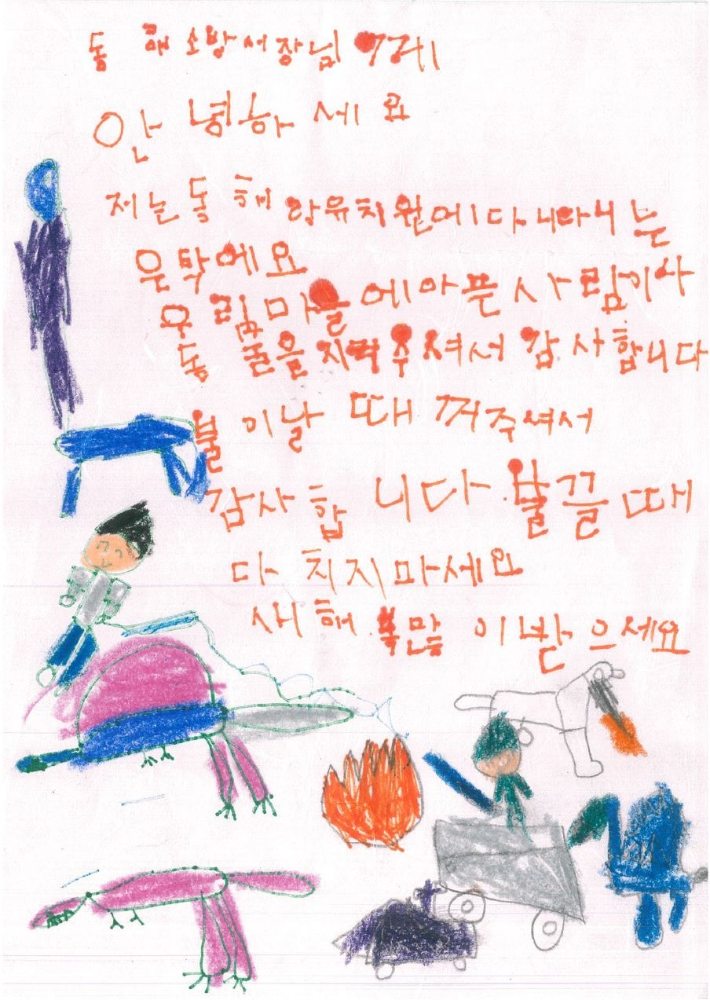 동해소방서장님께
안녕하세요
저는동해 유치원에다니라니는
운탁에요
우림마을에아픈사람이나
동굴을지켜주셔서 감사합니다
불이날 때 꺼주셔서
감사합니다 불끌때
다치지마세요
새해 복많이받으세요